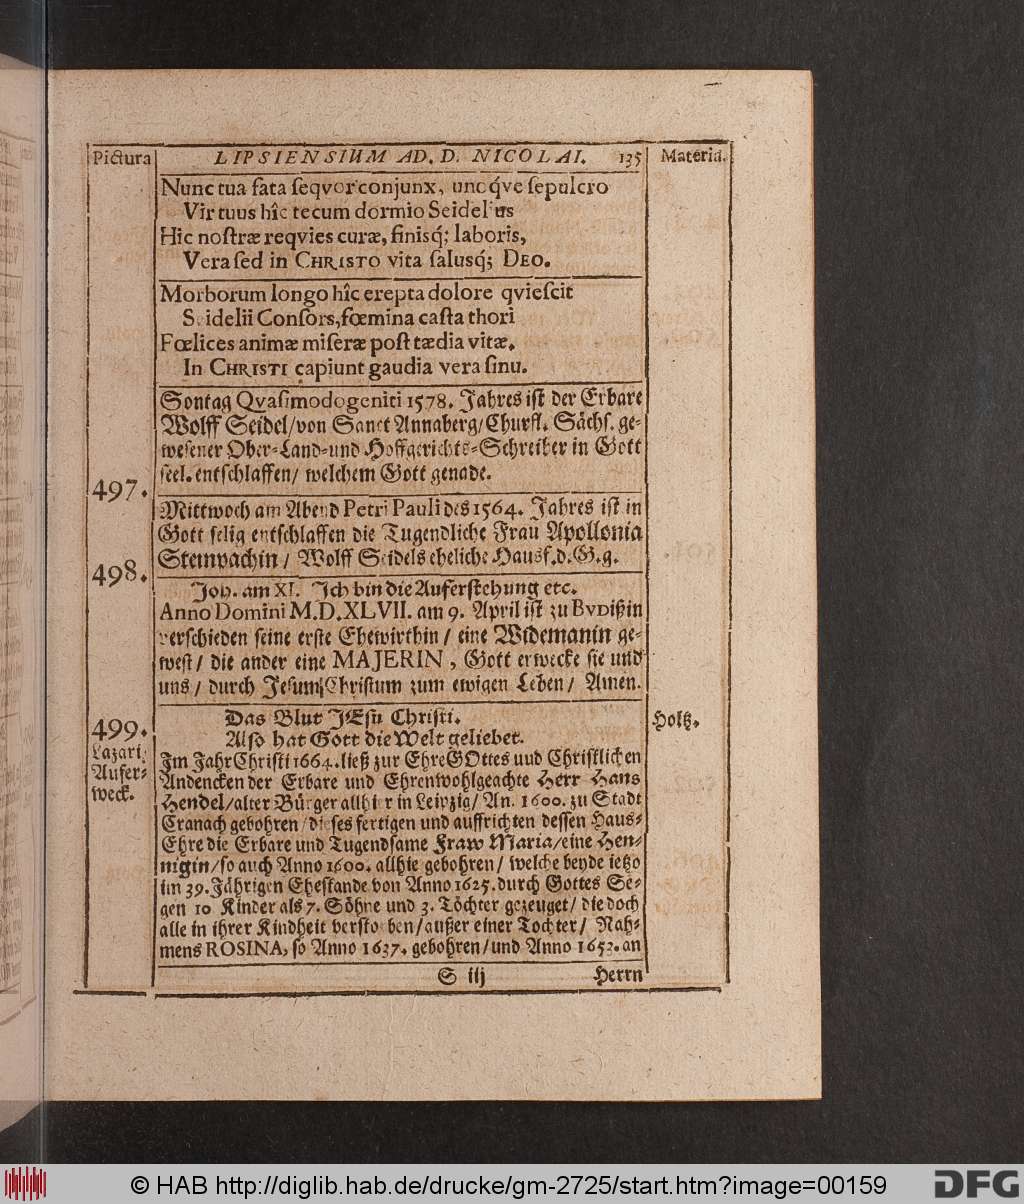 Pictura
LIPSIENSIUM AD. D. NICOLAI. 135
Materia.
Nunc tua fata ſeqvor conjunx, unoq́ve ſepulcro
Vir tuus hîc tecum dormio Seidelius
Hic noſtræ reqvies curæ, finisq́; laboris,
Vera ſed in CHRISTO vita ſalusq́; DEO.
Morborum longo hîc erepta dolore qvieſcit
Seidelii Conſors, fœmina caſta thori
Fœlices animæ miſeræ poſt tædia vitæ.
In CHRISTI capiunt gaudia vera ſinu.
Sontag Qvaſimodogeniti 1578. Jahres iſt der Erbare
Wolff Seidel/ von Sanct Annaberg/ Churfl. Sächſ. ge-
weſener Ober-Land-und Hoffgerichts-Schreiber in Gott
ſeel. entſchlaffen/ welchem Gott genade.
497.
Mittwoch am Abend Petri Pauli des 1564. Jahres iſt in
Gott ſelig entſchlaffen die Tugendliche Frau Apollonia
Steinbachin/ Wolff Seidels eheliche Hausf. d. G. g.
498.
Joh. am XI. Ich bin die Auferſtehung etc.
Anno Domini M. D. XLVII. am 9. April iſt zu BVDißin
verſchieden ſeine erſte Ehewirthin/ eine Widemanin ge-
weſt/ die ander eine MAJERIN, Gott erwecke ſie und
uns/ durch Jeſum Chriſtum zum ewigen Leben/ Amen.
499.
Lazari
Aufer-
weck.
Das Blut JEſu Chriſti.
Holtz.
Alſo hat Gott die Welt geliebet.
Im Jahr Chriſti 1664. ließ zur Ehre GOttes und Chriſtlichen
Andencken der Erbare und Ehrenwohlgeachte Herr Hans
Hendel/ alter Bürger allhier in Leipzig/ An. 1600. zu Stadt
Cranach gebohren/ dieſes fertigen und auffrichten deſſen Haus-
Ehre die Erbare und Tugendſame Fraw Maria/ eine Hen-
nigin/ ſo auch Anno 1600. allhie gebohren/ welche beyde ietzo
im 39. Jährigen Eheſtande von Anno 1625. durch Gottes Se-
gen 10 Kinder als 7. Söhne und 3. Töchter gezeuget/ die doch
alle in ihrer Kindheit verſtorben/ außer einer Tochter/ Nah-
mens ROSINA, ſo Anno 1637. gebohren/ und Anno 1653. an
S iij
Herrn
© HAB http://diglib.hab.de/drucke/gm-2725/start.htm?image=00159
DFG